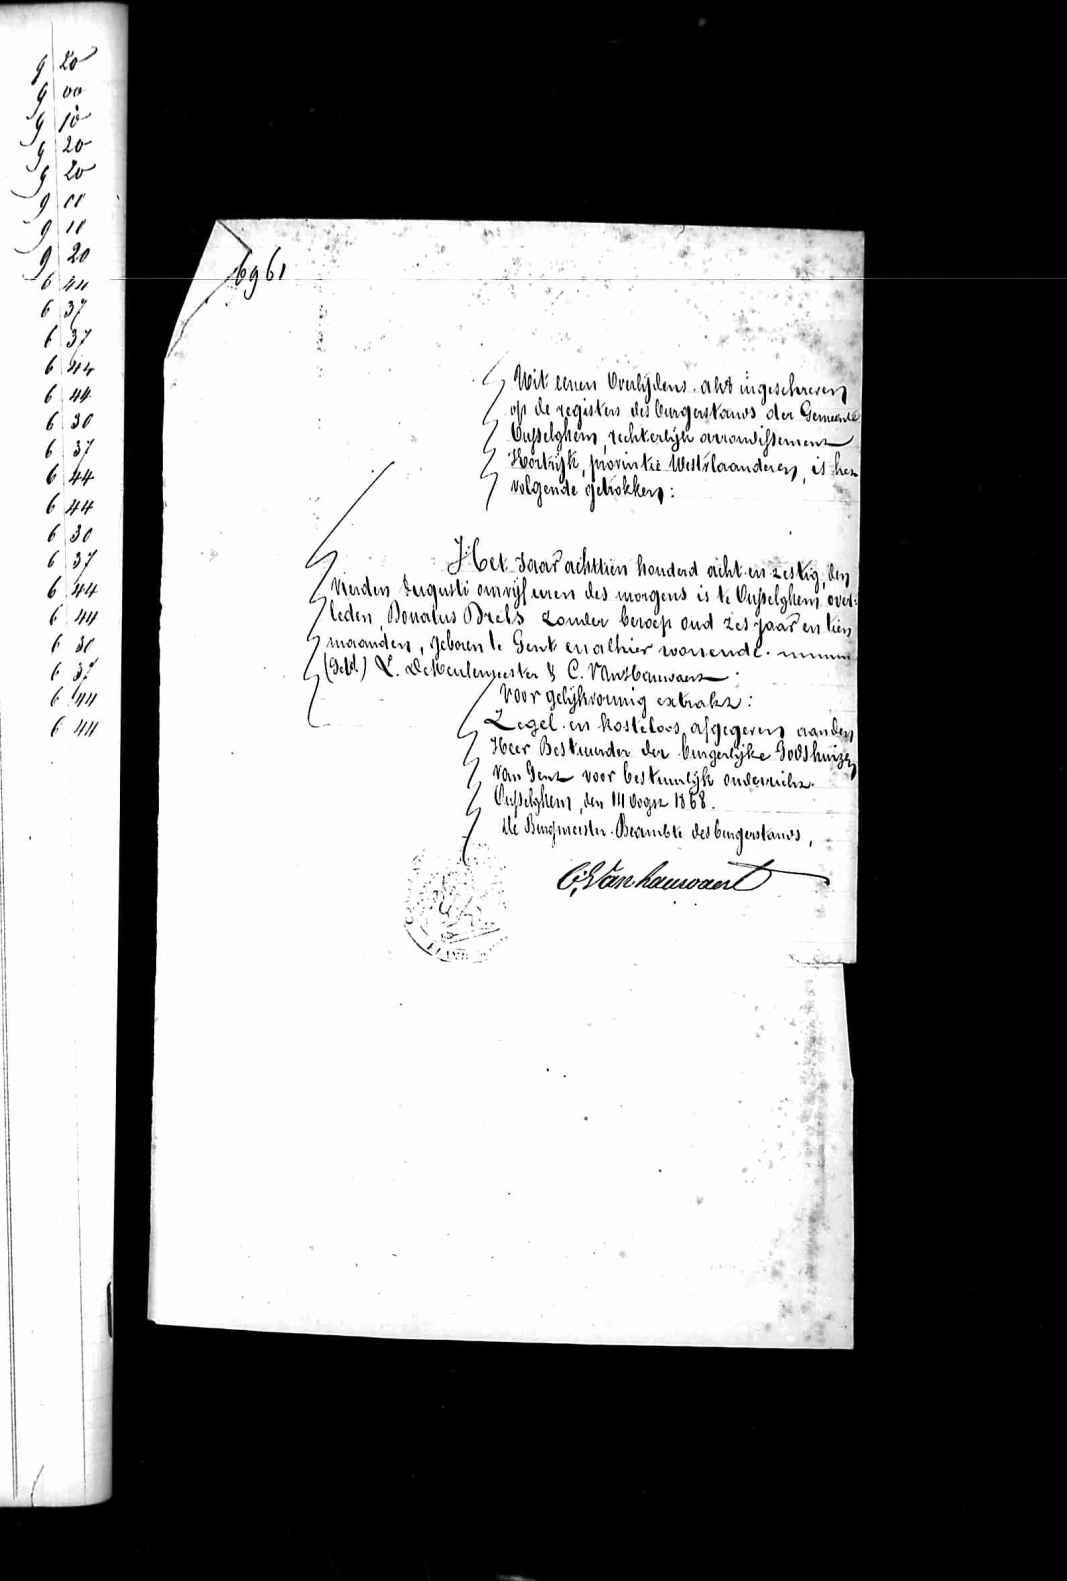 9 20
9 00
9 10
9 20
9 20
9 11
9 11
9 20
6 44
6 37
6 37
6 44
6 44
6 30
6 37
6 44
6 44
6 30
6 37
6 44
6 44
6 30
6 37
6 44
6 44
6961
Uit eenen Overlijdens-akt ingeschreven
op de registers des burgerstands der Gemeente
Ousselghem, rechterlijk arrondissement
Kortrijk, provintie Westvlaanderen, is het
volgende getrokken:
Het Jaar achttien honderd acht-en-zestig, den
vierden Augusti om vijf uren des morgens is te Ousselghem over-
leden Donatus Brels zonder beroep oud zes jaar en tien
maanden, geboren te Gent en alhier wonende.
(Get.) L. DeMeulemeester & C. VanHauwaert.
Voor gelijkvormig extrakt:
Zegel- en kosteloos afgegeven aan den
Heer Bestuurder der burgerlijke Godshuizen
van Gent voor bestuurlijk onderricht.
Ousselghem, den 14 Oogst 1868.
De Burgmeester-Beambte des burgerstands,
C. Vanhauwaert